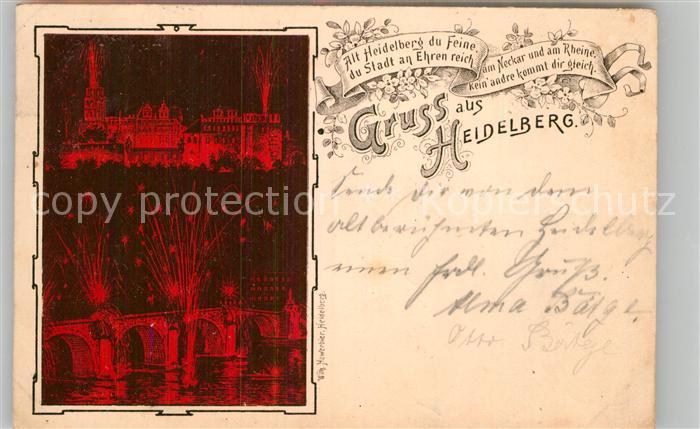 Alt Heidelberg du Feine,
du Stadt an Ehren reich
am Neckar und am Rheine,
Kein' andre kommt dir gleich.
Gruss aus
HEIDELBERG.
Sende dir von dem
altberühmten Heidelberg
einen frdl. Gruß.
Alma Bätge.
Otto Bätge
Heidelberg.
copy protection ** Kopierschutz